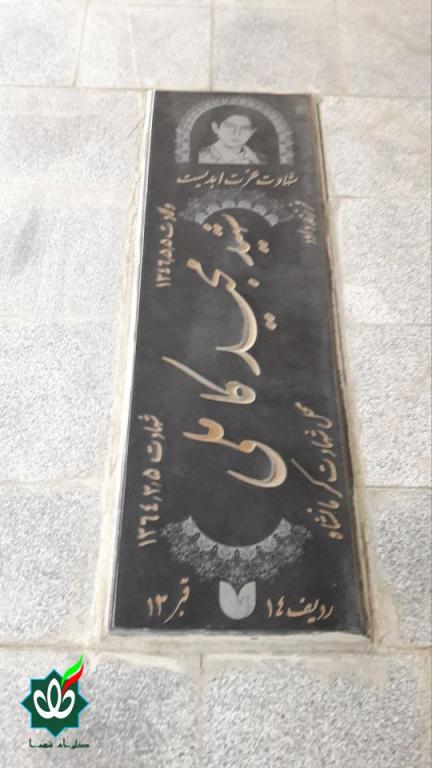 شهادت عزت ابدیست
فرزند داود
شهید مجید کاملی
ولادت ۱۳۴۶٫۵٫۵
محل شهادت کرمانشاه
شهادت ۱۳۶۴٫۳٫۵
ردیف ۱۴
قبر ۱۳
گلزار شهدا